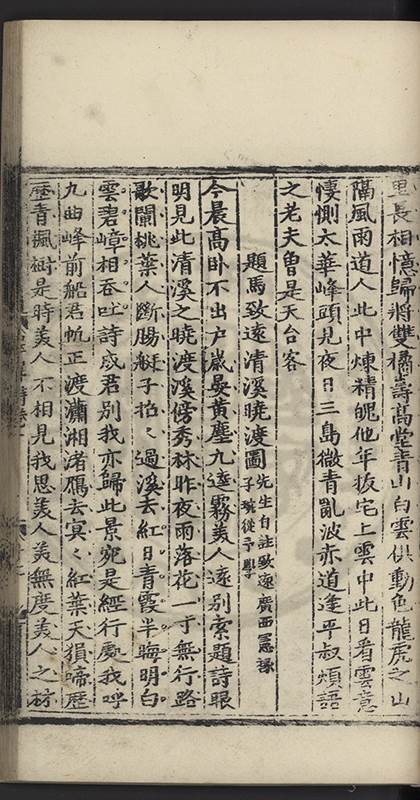 里長相憶歸將雙橘壽高堂青山白雲俱動色龍虎之山
隔風雨道人此中煉精魄他年拔宅上雲中此日看雲意
悽惻太華峰頭見夜日三島微青亂波赤道逢平叔煩語
之老夫曾是天台客
題馬致遠清溪曉渡圖先生自註致遠廣西憲掾
子琬從予學
今晨高臥不出户歲晏黄塵九逵霧美人遠别索題詩眼
明見此清溪之曉渡溪傍秀林昨夜雨落花一寸無行路
歌闌桃葉人斷腸艇子招招過溪去紅日青霞半晦明白
雲碧嶂相吞吐詩成君别我亦歸此景宛是經行處我呼
九曲峰前船君帆正渡瀟湘渚鴈去冥冥紅葉天猿啼歷
歷青楓樹是時美人不相見我思美人美無度美人之材